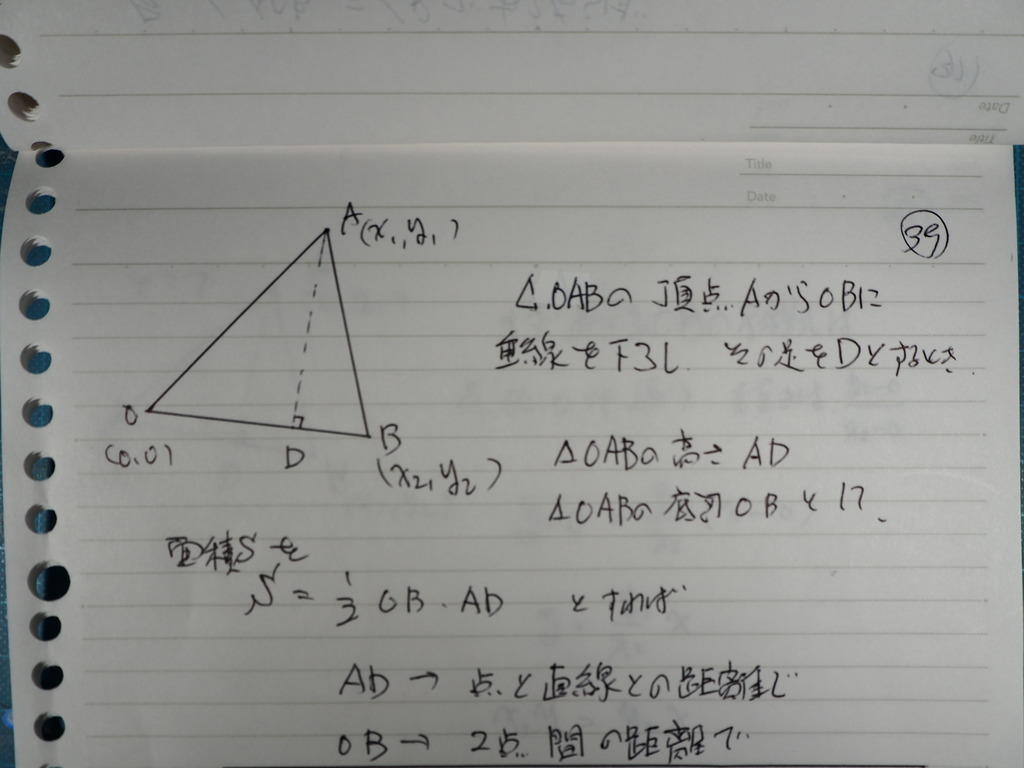 Title
Date
㊴
A(x₁,y₁)
O
(0,0)
D
B
(x₂,y₂)
△OABの頂点AからOBに
垂線を下ろし その足をDとするとき
△OABの高さ AD
△OABの底辺 OB として、
面積Sを
S = 1/2 OB・AD とすれば
AD → 点と直線との距離で
OB → 2点間の距離で